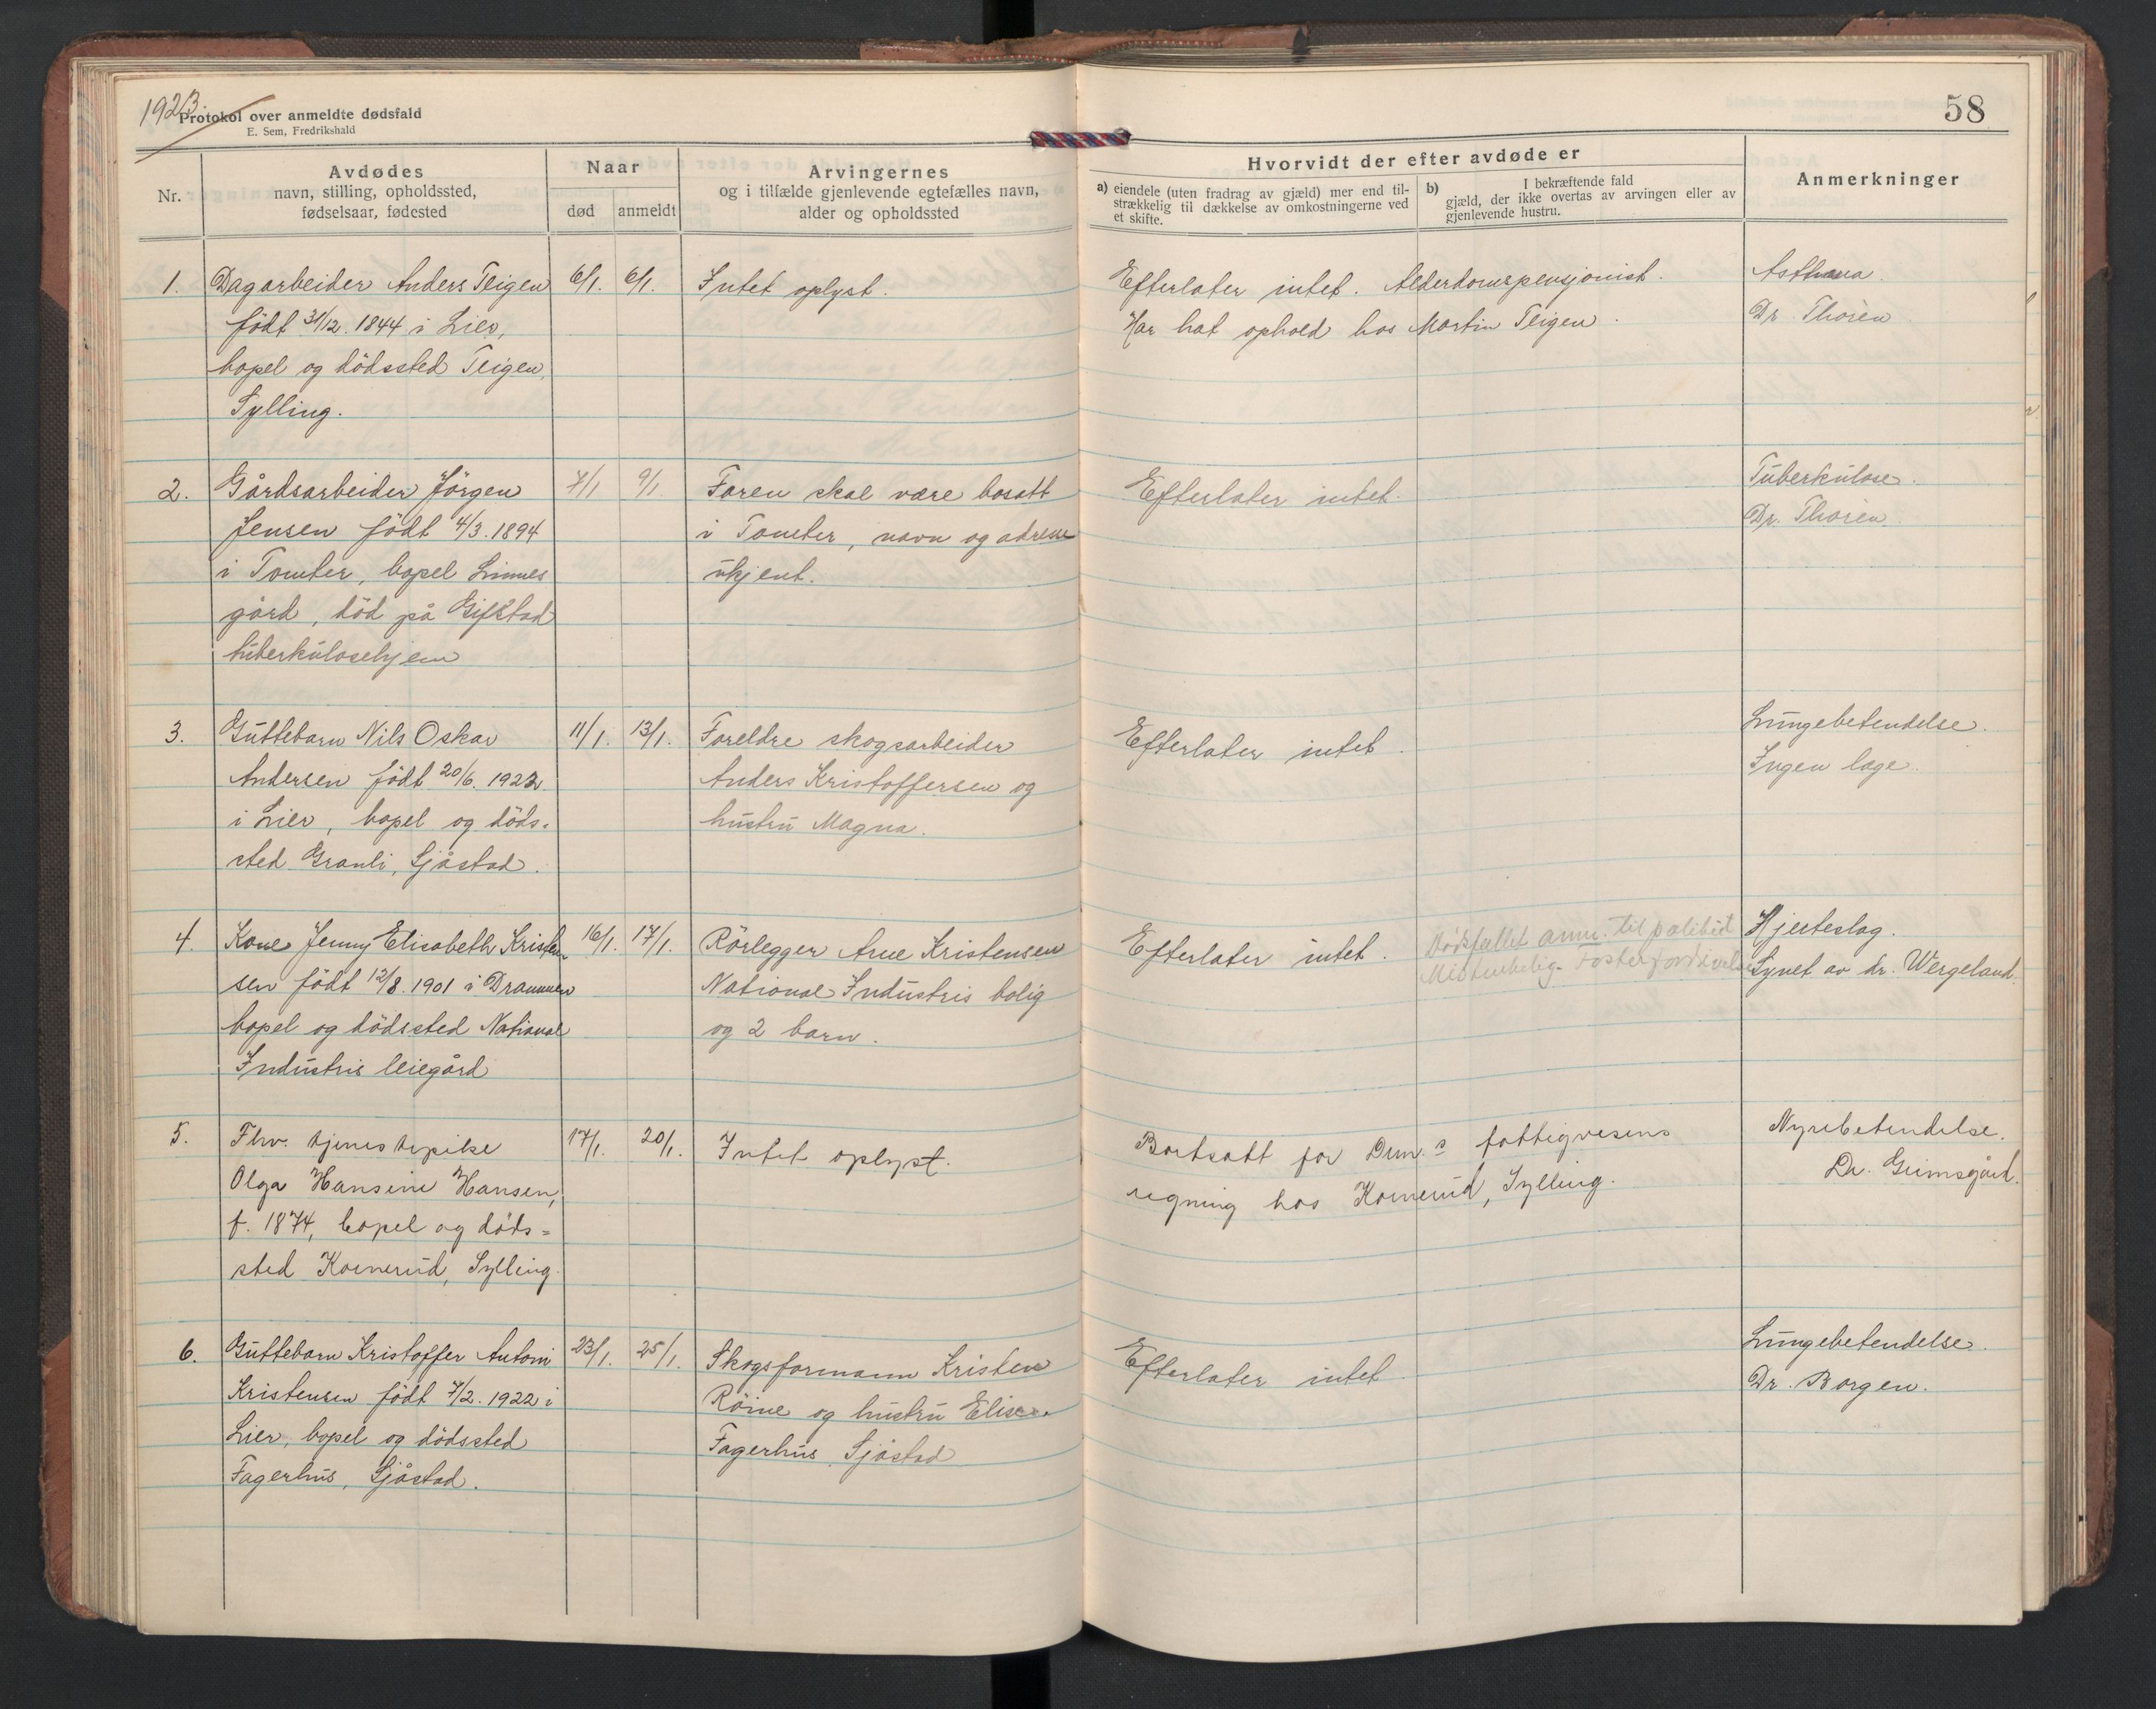 1923.
Protokol over anmeldte dødsfald
E. Sem, Fredrikshald
58
Nr.
Avdødes
navn, stilling, opholdssted,
fødselsaar, fødested
Naar
død
anmeldt
Arvingernes
og i tilfælde gjenlevende egtefælles navn,
alder og opholdssted
Hvorvidt der efter avdøde er
a) eiendele (uten fradrag av gjæld) mer end til-
strækkelig til dækkelse av omkostningerne ved
et skifte.
b) I bekræftende fald
gjæld, der ikke overtas av arvingen eller av
gjenlevende hustru.
Anmerkninger
1.
Dagarbeider Anders Teigen
født 31/12. 1844 i Lier,
bopel og dödssted Teigen,
Sylling.
6/1. 6/1.
Intet oplyst.
Efterlater intet. Alderdomspensjonist.
Har hat ophold hos Martin Teigen.
Asthma.
Dr. Thorén
2.
Gårdsarbeider Jörgen
Jensen født 4/3. 1894
i Tomter, bopel Linnes
gård, död på Gifstad
tuberkulosehjem
7/1 9/1
Faren skal være bosatt
i Tomter, navn og adresse
ukjent.
Efterlater intet.
Tuberkulose.
Dr. Thorén
3.
Guttebarn Nils Oskar
Andersen født 20/6. 1922
i Lier, bopel og döds-
sted Granli, Sjåstad.
11/1. 13/1.
Foreldre skogsarbeider
Anders Kristoffersen og
hustru Magna.
Efterlater intet.
Lungebetendelse.
Ingen læge.
4.
Kone Jenny Elisabeth Kristen-
sen født 12/8. 1901 i Drammen
bopel og dödssted National
Industris leiegård
16/1. 17/1.
Rörlegger Arne Kristensen
National Industris bolig
og 2 barn.
Efterlater intet.
Dødsfallet anm. til politiet
Fosterfordrivelse
Hjerteslag.
Synet av dr. Wergeland.
5.
Fhv. tjenestepike
Olga Hansine Hansen,
f. 1874, bopel og døds-
sted Kornerud, Sylling.
17/1. 20/1.
Intet oplyst.
Bortsatt for Drm.s fattigvesens
regning hos Kornerud, Sylling.
Nyrebetendelse.
Dr. Grimsgård.
6.
Guttebarn Kristoffer Antoni
Kristensen født 7/2. 1922 i
Lier, bopel og dödssted
Fagerhus, Sjåstad.
23/1. 25/1.
Skogsformann Kristen
Röine og hustru Elise.
Fagerhus, Sjåstad
Efterlater intet.
Lungebetendelse.
Dr. Borgen.